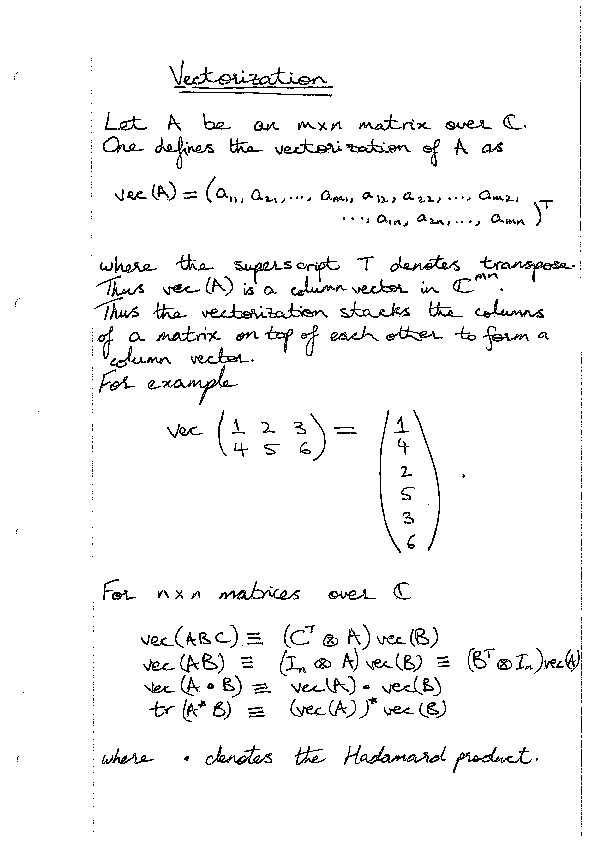 Vectorization
Let A be an m×n matrix over ℂ.
One defines the vectorization of A as
vec(A) = (a₁₁, a₂₁, ..., aₘ₁, a₁₂, a₂₂, ..., aₘ₂,
..., a₁ₙ, a₂ₙ, ..., aₘₙ)ᵀ
where the superscript T denotes transpose.
Thus vec(A) is a column vector in ℂᵐⁿ.
Thus the vectorization stacks the columns
of a matrix on top of each other to form a
column vector.
For example
vec (1 2 3
4 5 6) = (1
4
2
5
3
6) .
For n×n matrices over ℂ
vec(ABC) ≡ (Cᵀ ⊗ A) vec(B)
vec(AB) ≡ (Iₙ ⊗ A) vec(B) ≡ (Bᵀ ⊗ Iₙ) vec(A)
vec(A • B) ≡ vec(A) • vec(B)
tr(A* B) ≡ (vec(A))* vec(B)
where • denotes the Hadamard product.